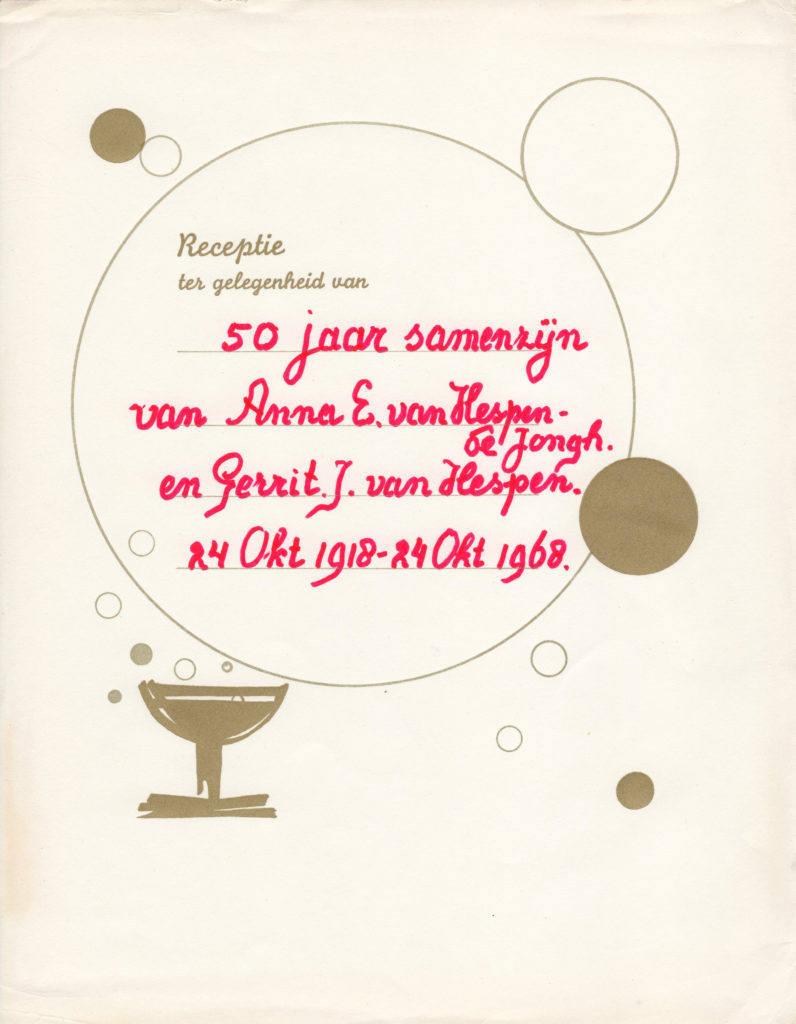 Receptie
ter gelegenheid van
50 jaar samenzijn
van Anna E. van Hespen-
de Jongh.
en Gerrit. J. van Hespen.
24 Okt 1918-24 Okt 1968.